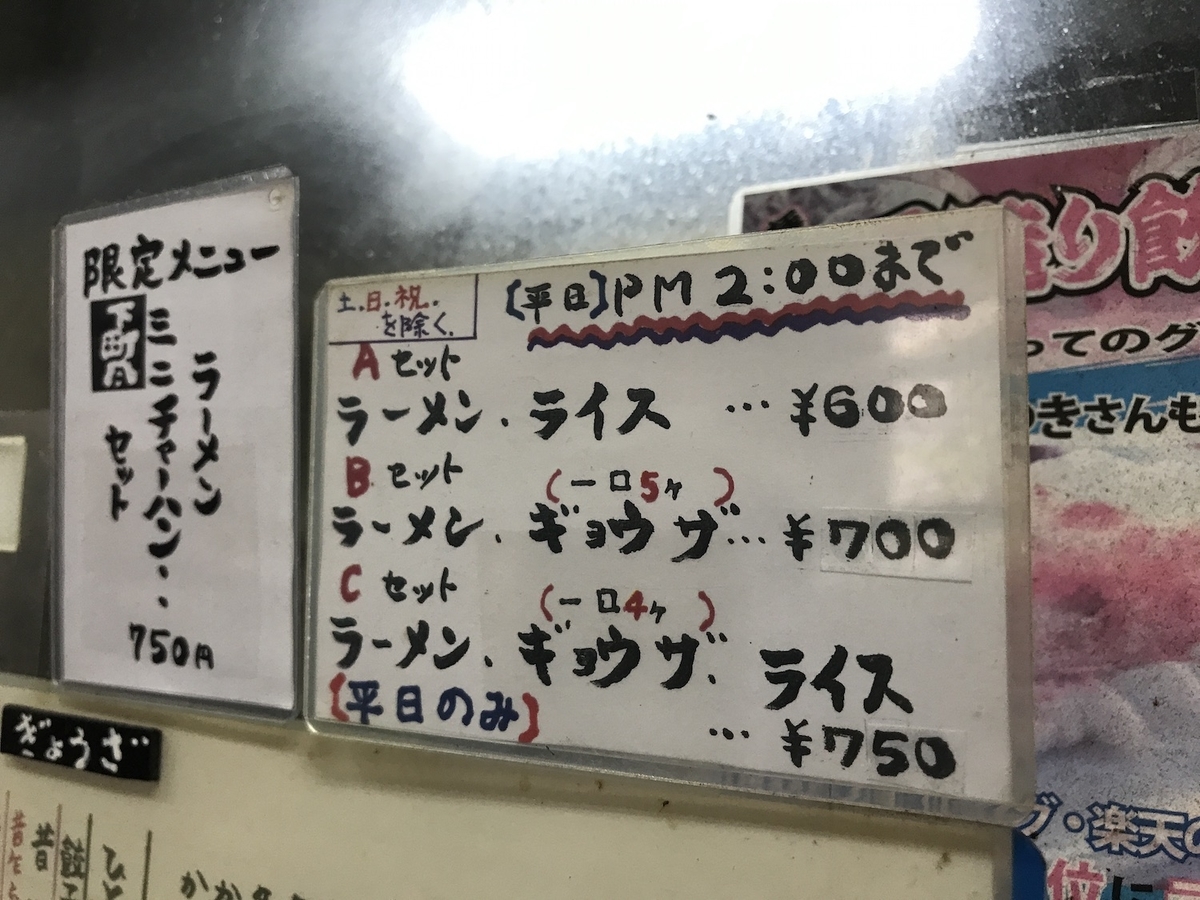 限定メニュー
ラーメン
ミニチャーハン・・
セット
750円
土.日.祝.
を除く.
【平日】PM 2:00まで
Aセット
ラーメン、ライス … ¥600
Bセット (一口5ヶ)
ラーメン、ギョウザ… ¥700
Cセット (一口4ヶ)
ラーメン、ギョウザ、ライス
【平日のみ】 … ¥750
ぎょうざ
ってのグ
きさんも
グ・楽天の
位に
昔
餃子
ひと